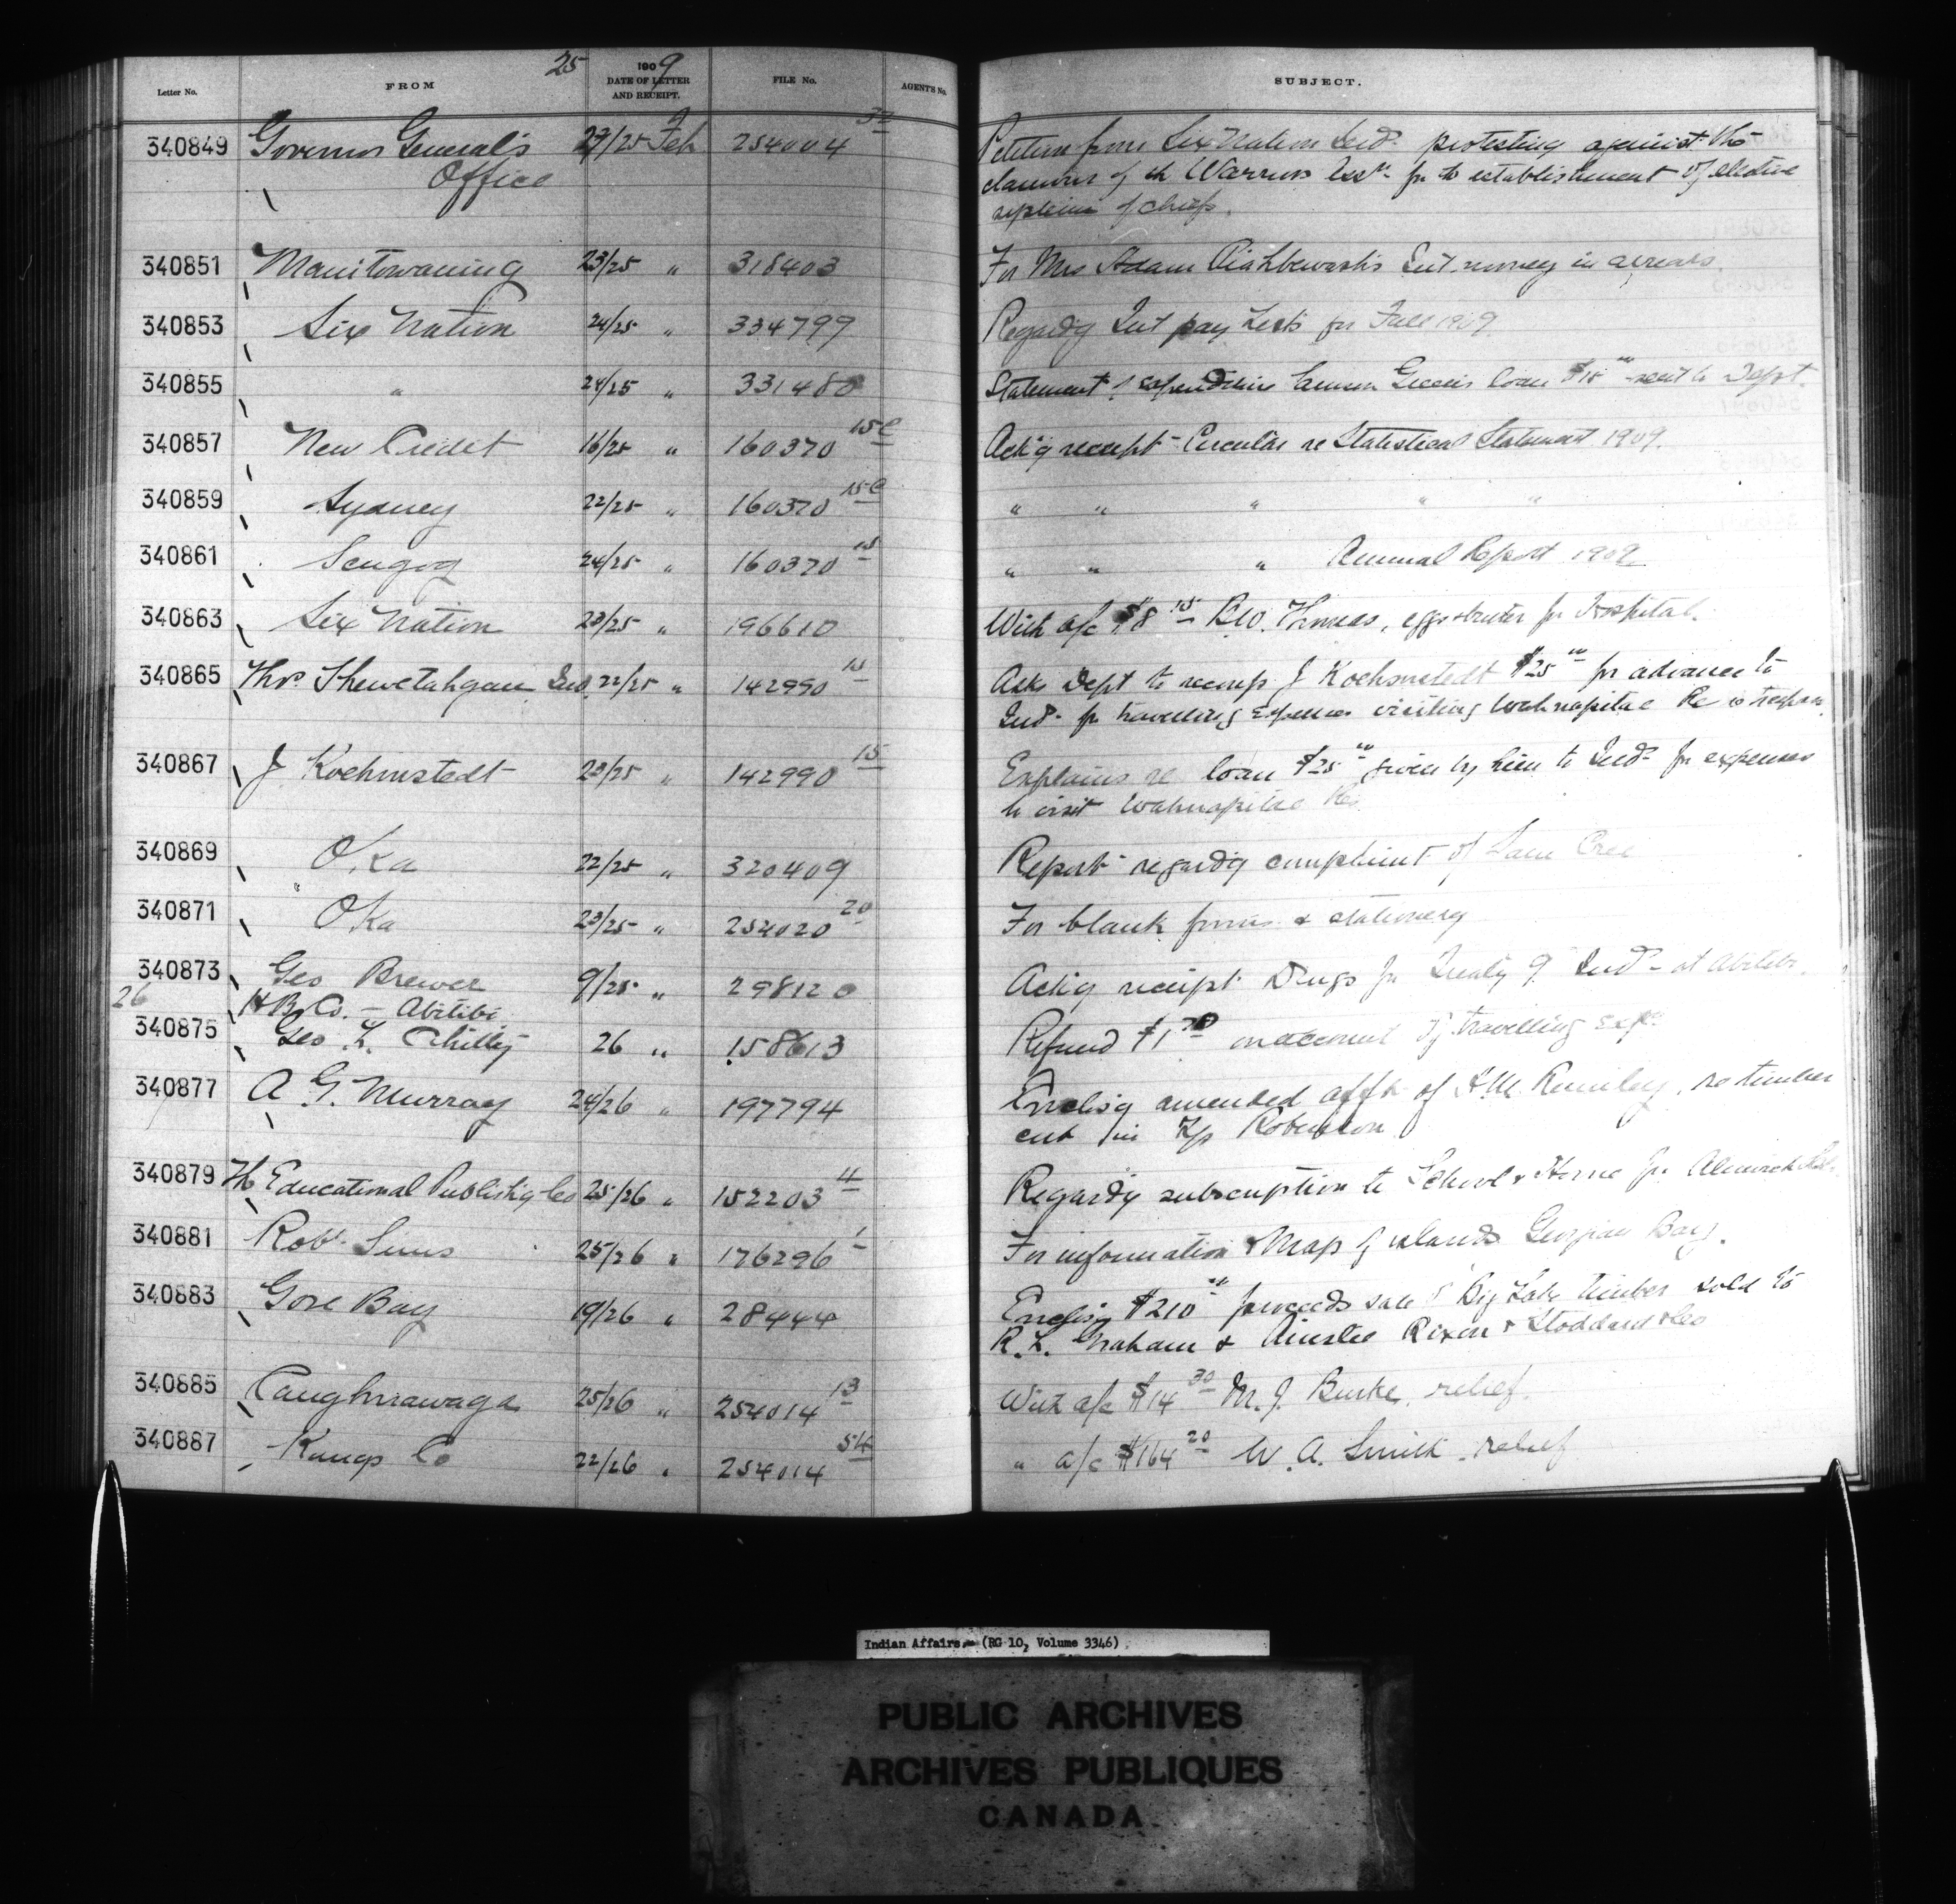 25
Letter No. FROM 1909 DATE OF LETTER AND RECEIPT. FILE No. AGENT'S No. SUBJECT.
340849 Governor General's Office 25 Feb 254004 Petition from Six Nation Inds protesting against the
of the Warriors for the establishment of elective
of chiefs.
340851 Manitowaning 23/25 " 318403 For Mrs Adam Int. money in arrears.
340853 Six Nation 24/25 " 334799 Regardg Int pay Lists for Fall 1909
340855 " 24/25 " 331480 Statement of expenditure loan sent to Dept.
340857 New Credit 16/25 " 160370 15C Ackg receipt Circular re Statistical Statement 1909.
340859 Sydney 22/25 " 160370 15C " " " " "
340861 Scugog 24/25 " 160370 15 " " " Annual Report 1909
340863 Six Nation 23/25 " 196610 With a/c $8 15 Thomas, eggs & butter for Hospital.
340865 Thos. Shewetahgan Ind 22/25 " 142990 15 Asks Dept to recoup J Koehmstedt $25 00 for advance to
Inds for travelling expenses visiting Wahnapitae Re
340867 J Koehmstedt 23/25 " 142990 15 Explains re loan $25 00 given by him to Inds for expenses
to visit Wahnapitae Res.
340869 Oka 22/25 " 320409 Report regardg complaint of Sam Cree
340871 " Oka 23/25 " 254020 20 For blank forms & stationery
340873 Geo Brewer 9/25 " 298120 Ackg receipt Drugs for Treaty 9 Inds at Abitibi.
26 H B Co. - Abitibi
340875 Geo L. Chitty 26 " 158613 Refund $1 on account of travelling exps
340877 A G. Murray 24/26 " 197794 Enclosg amended afft of re timber
cut in Tp Robinson
340879 The Educational Publishg Co 25/26 " 152203 4 Regardg subscription to School & Home for Alnwick
340881 Robt Sims 25/26 " 176296 1 For information & Map of islands Georgian Bay.
340883 Gore Bay 19/26 " 28444 Enclosg $210 00 proceeds sale of Big Lake timber sold to
R. L. Graham & Ainslie Rixen & Stoddard & Co
340885 Caughnawaga 25/26 " 254014 13 With a/c $14 30 M. J. Burke. relief.
340887 Kings Co 22/26 " 254014 54 " a/c $164 20 W. A. Smith. relief
Indian Affairs. (RG 10, Volume 3346)
PUBLIC ARCHIVES
ARCHIVES PUBLIQUES
CANADA